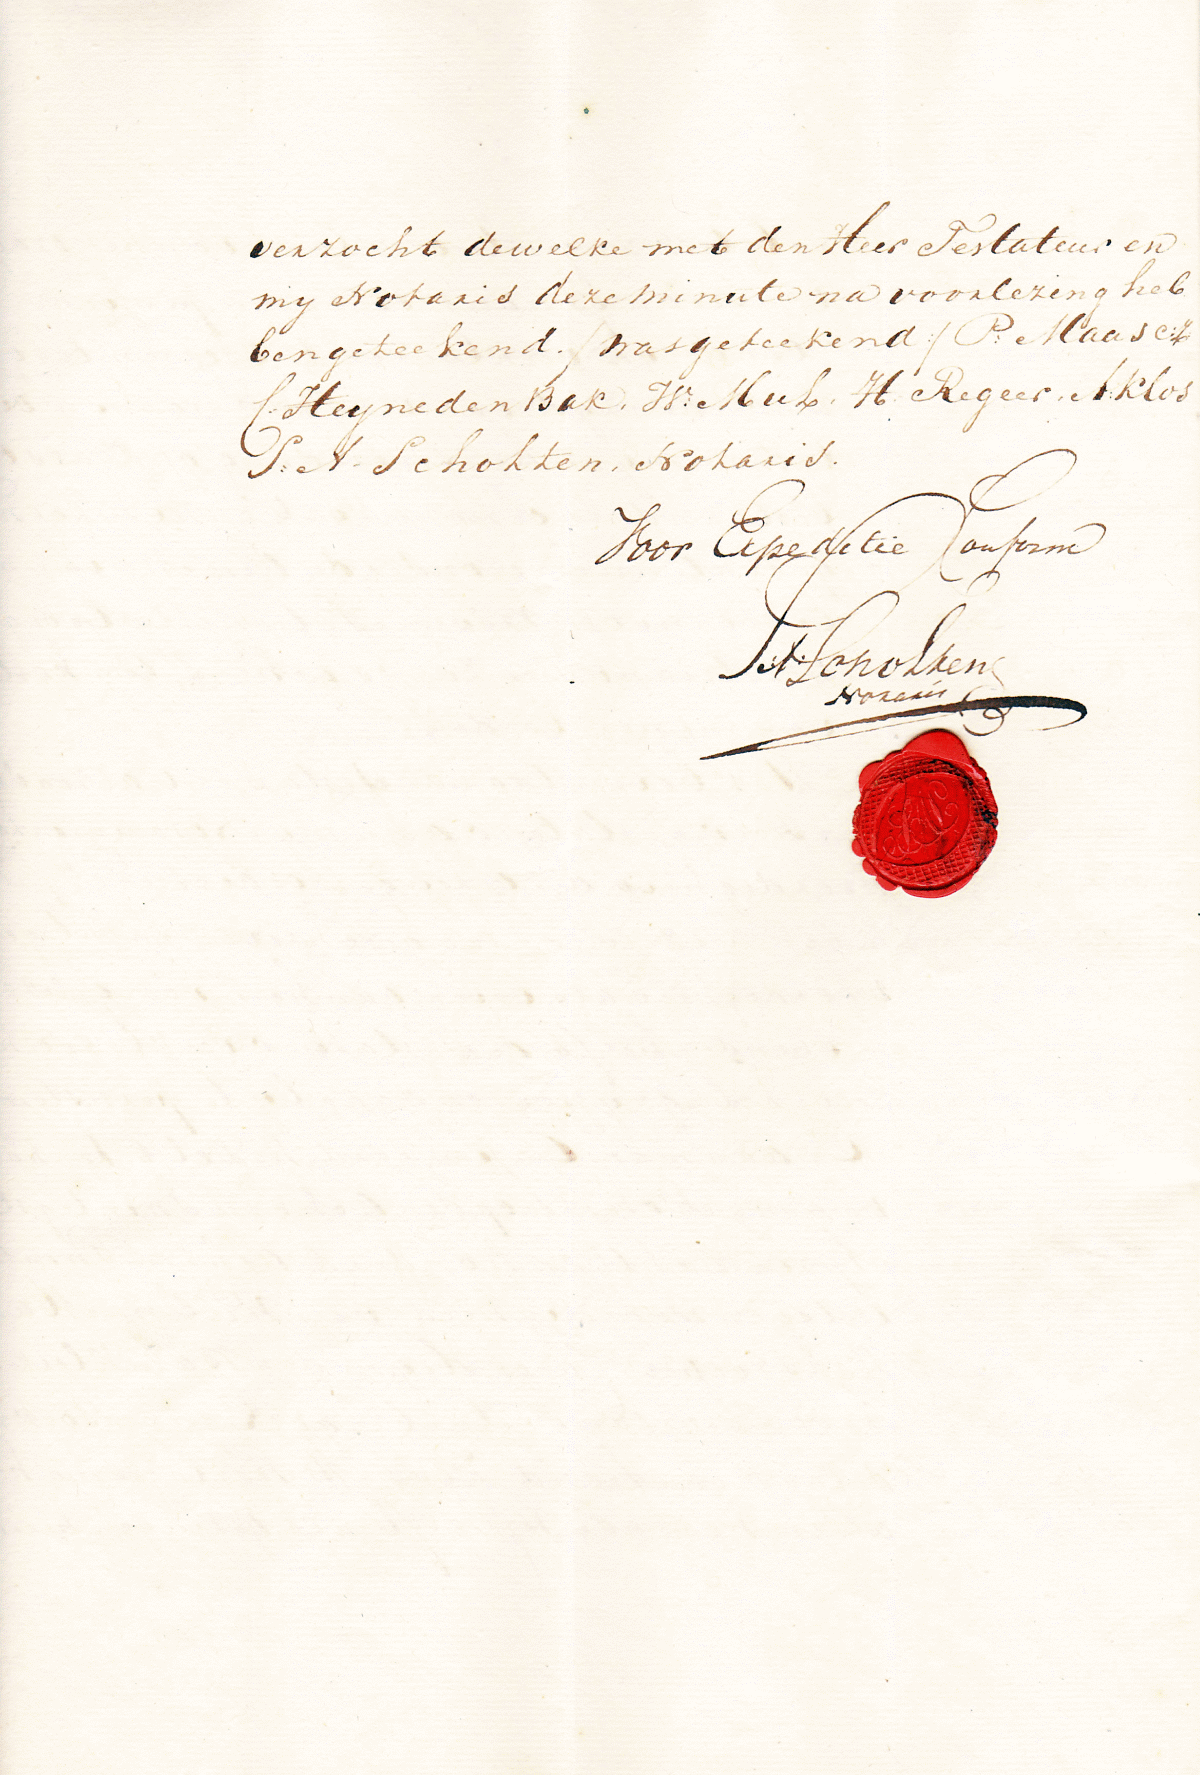 verzocht dewelke met den Heer Testateur en
my Notaris deze minute na voorlezing heb
ben geteekend. / was geteekend / P. Maas Cz
C. Heyneden Bak. W: Mul. H. Regeer. A. Klos
P: A. Scholten. Notaris.
Voor Expeditie Conform
P:A: Scholten
Notaris